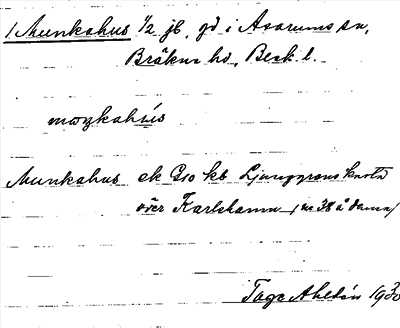 1 Munkahus 1/2 jb, gd i Asarums sn,
Bräkne hd, Blek. l.
maykahús
Munkahus ek G10 kb Ljunggrens karta
över Karlshamn (nr 38 å denna)
Tage Ahldén 1930